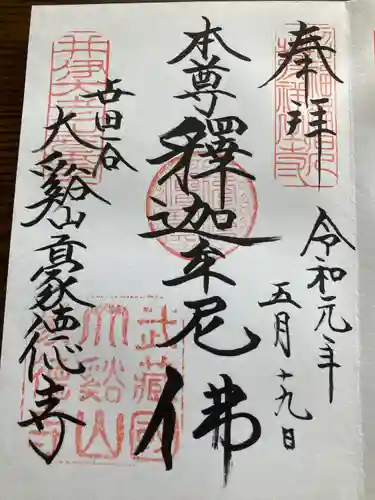 奉拝
令和元年
五月十九日
本尊
釋迦牟尼佛
世田谷
大谿山豪徳寺
武蔵國
大谿山